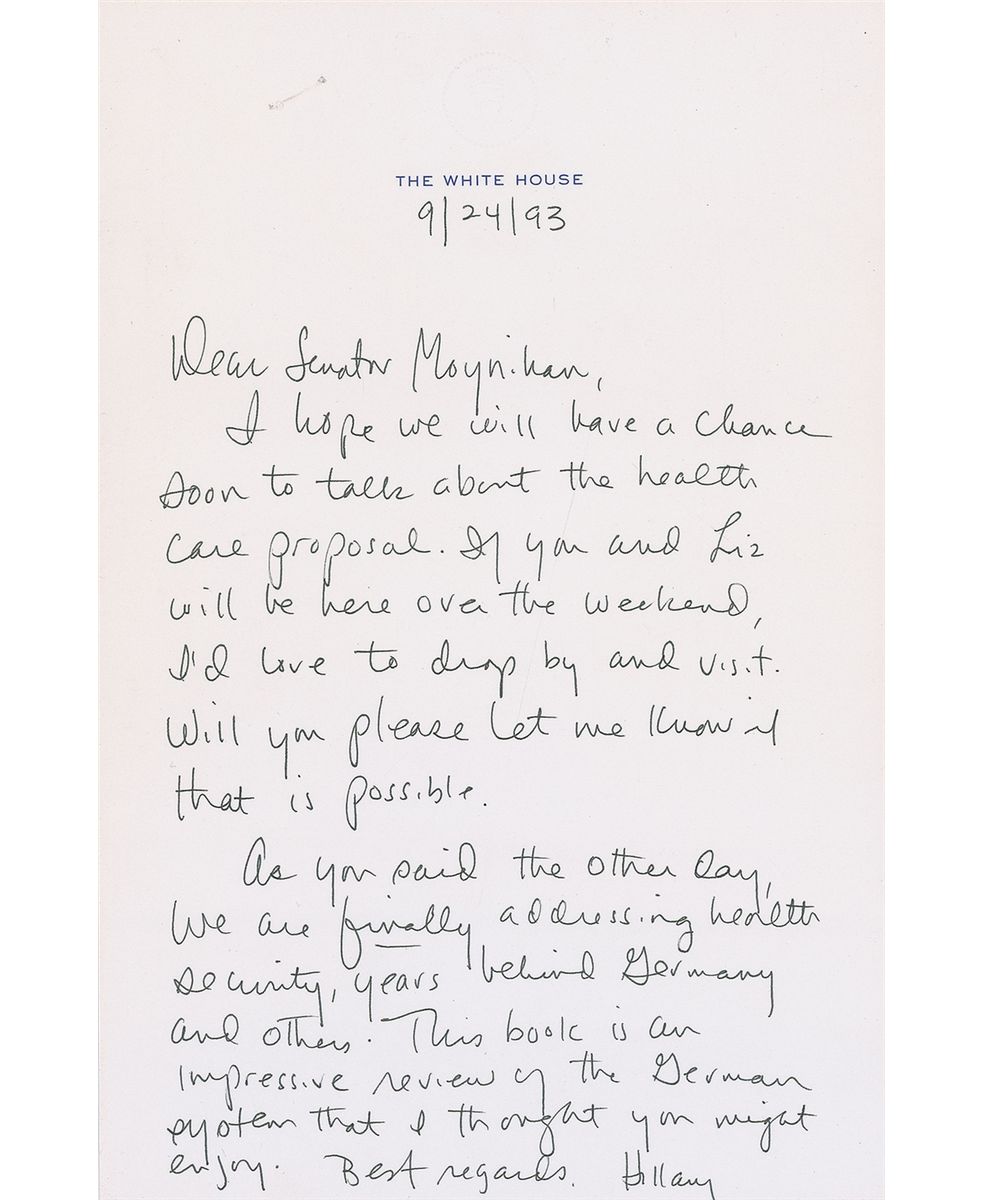 THE WHITE HOUSE
9/24/93
Dear Senator Moynihan,
I hope we will have a chance
soon to talk about the health
care proposal. If you and Liz
will be here over the weekend,
I'd love to drop by and visit.
Will you please let me know if
that is possible.
As you said the other day,
we are finally addressing health
security, years behind Germany
and others. This book is an
impressive review of the German
system that I thought you might
enjoy. Best regards. Hillary